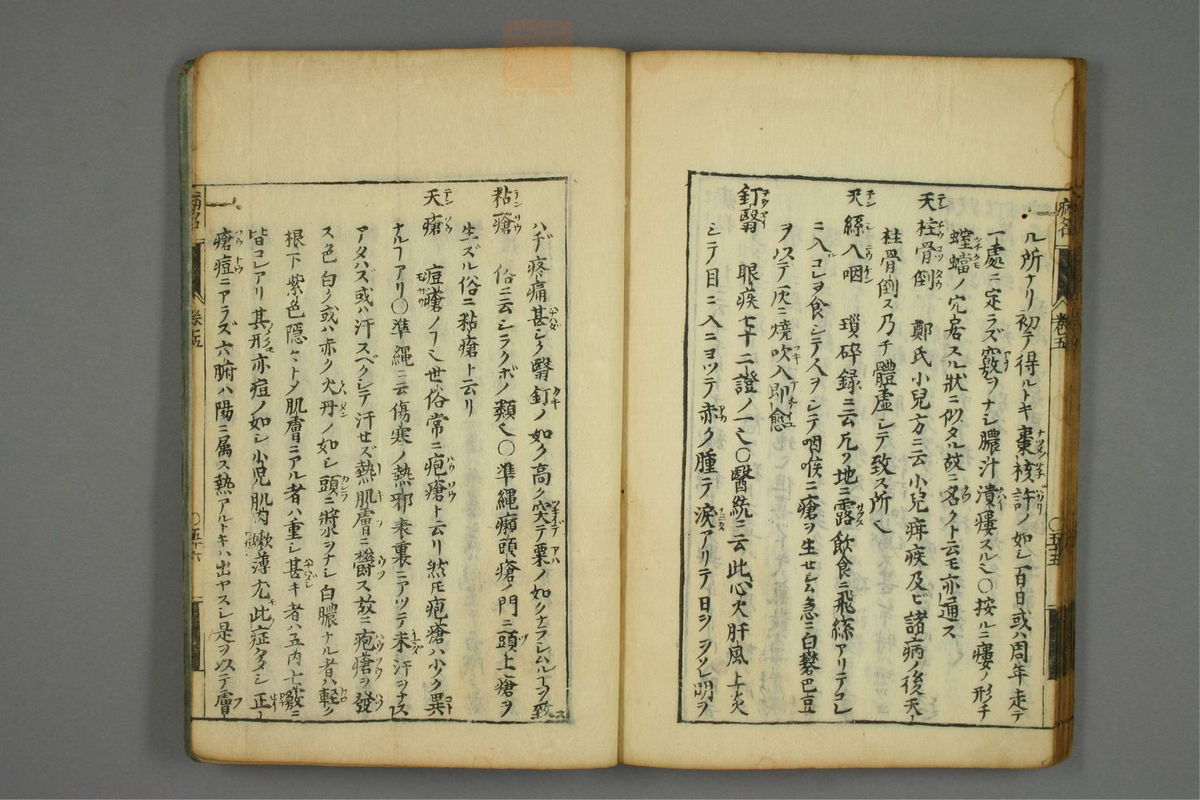 ル所ナリ初テ得ルトキ棗核許ノ如シ百日或ハ周年走テ
一處ニ定ラズ竅ヲナシ膿汁潰瘻スル〇按ルニ瘻ノ形チ
螳蟷ノ穴居スル狀ニ似タル故ニ名クト云モ亦通ス
天柱骨倒 鄭氏小兒方ニ云小兒疳疾及ビ諸病ノ後天
柱骨倒ス乃チ體虛シテ致ス所
天絲入咽 瑣碎録ニ云凡ソ地ニ露飲食ニ飛絲アリテコレ
ニ入コレヲ食シテ人ヲシテ咽喉ニ瘡ヲ生セシム急ニ白礬巴豆
ヲ以テ灰ニ燒吹入即愈
釘翳 眼疾七十二證ノ一〇醫統ニ云此心火肝風上炎
シテ目ニ入ニヨツテ赤ク腫テ淚アリテ日
ハナハダ疼痛甚シク翳釘ノ如ク高ク突テ粟ノ如クナラシムルヿヲ致ス
黏瘡 俗ニ云シラクボノ類〇準繩癩頭瘡ノ門ニ頭上瘡ヲ
生ズル俗ニ黏瘡ト云リ
天瘡 痘瘡ノ世俗常ニ疱瘡ト云リ然疱瘡ハ少ク異
ナルヿアリ〇準繩ニ云傷寒ノ熱邪表裏ニアツテ未汗ヲナス
アタハズ或ハ汗スベクシテ汗セズ熱肌膚ニ欝ス故ニ疱瘡ヲ發
ス色白ク或ハ赤ク火丹ノ如シ頭ニ漿ヲナシ白膿ナル者ハ輕ク
根下紫色隱肌膚ニアル者ハ重シ甚キ者ハ五内七竅ニ
皆コレアリ其形亦痘ノ如シ小兒肌肉嫩薄尤此症多シ正
瘡痘ニアラズ六腑ハ陽ニ属ス熱アルトキハ出ヤスシ是ヲ以テ膚
病名
卷五
〇五十五
卷五
〇五十六